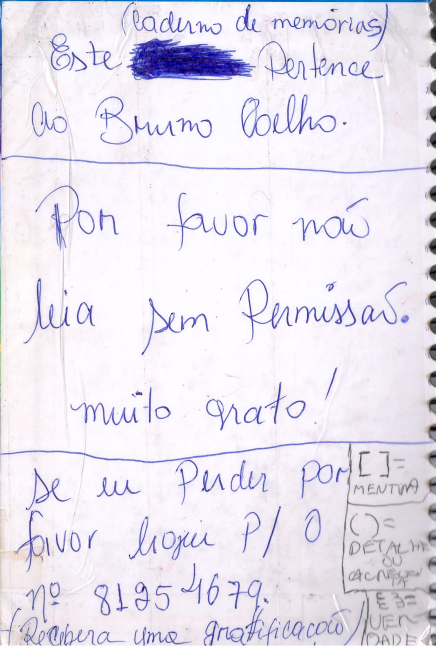 (Caderno de memórias)
Este Pertence
ao Bruno Coelho.
Por favor não
leia sem Permissão.
muito grato!
Se eu Perder por
favor ligue P/ O
nº 81254679.
(Recebera uma gratificação)
[ ]=
MENTIRA
( )=
DETALHE
OU
{ }=
VER
DADE